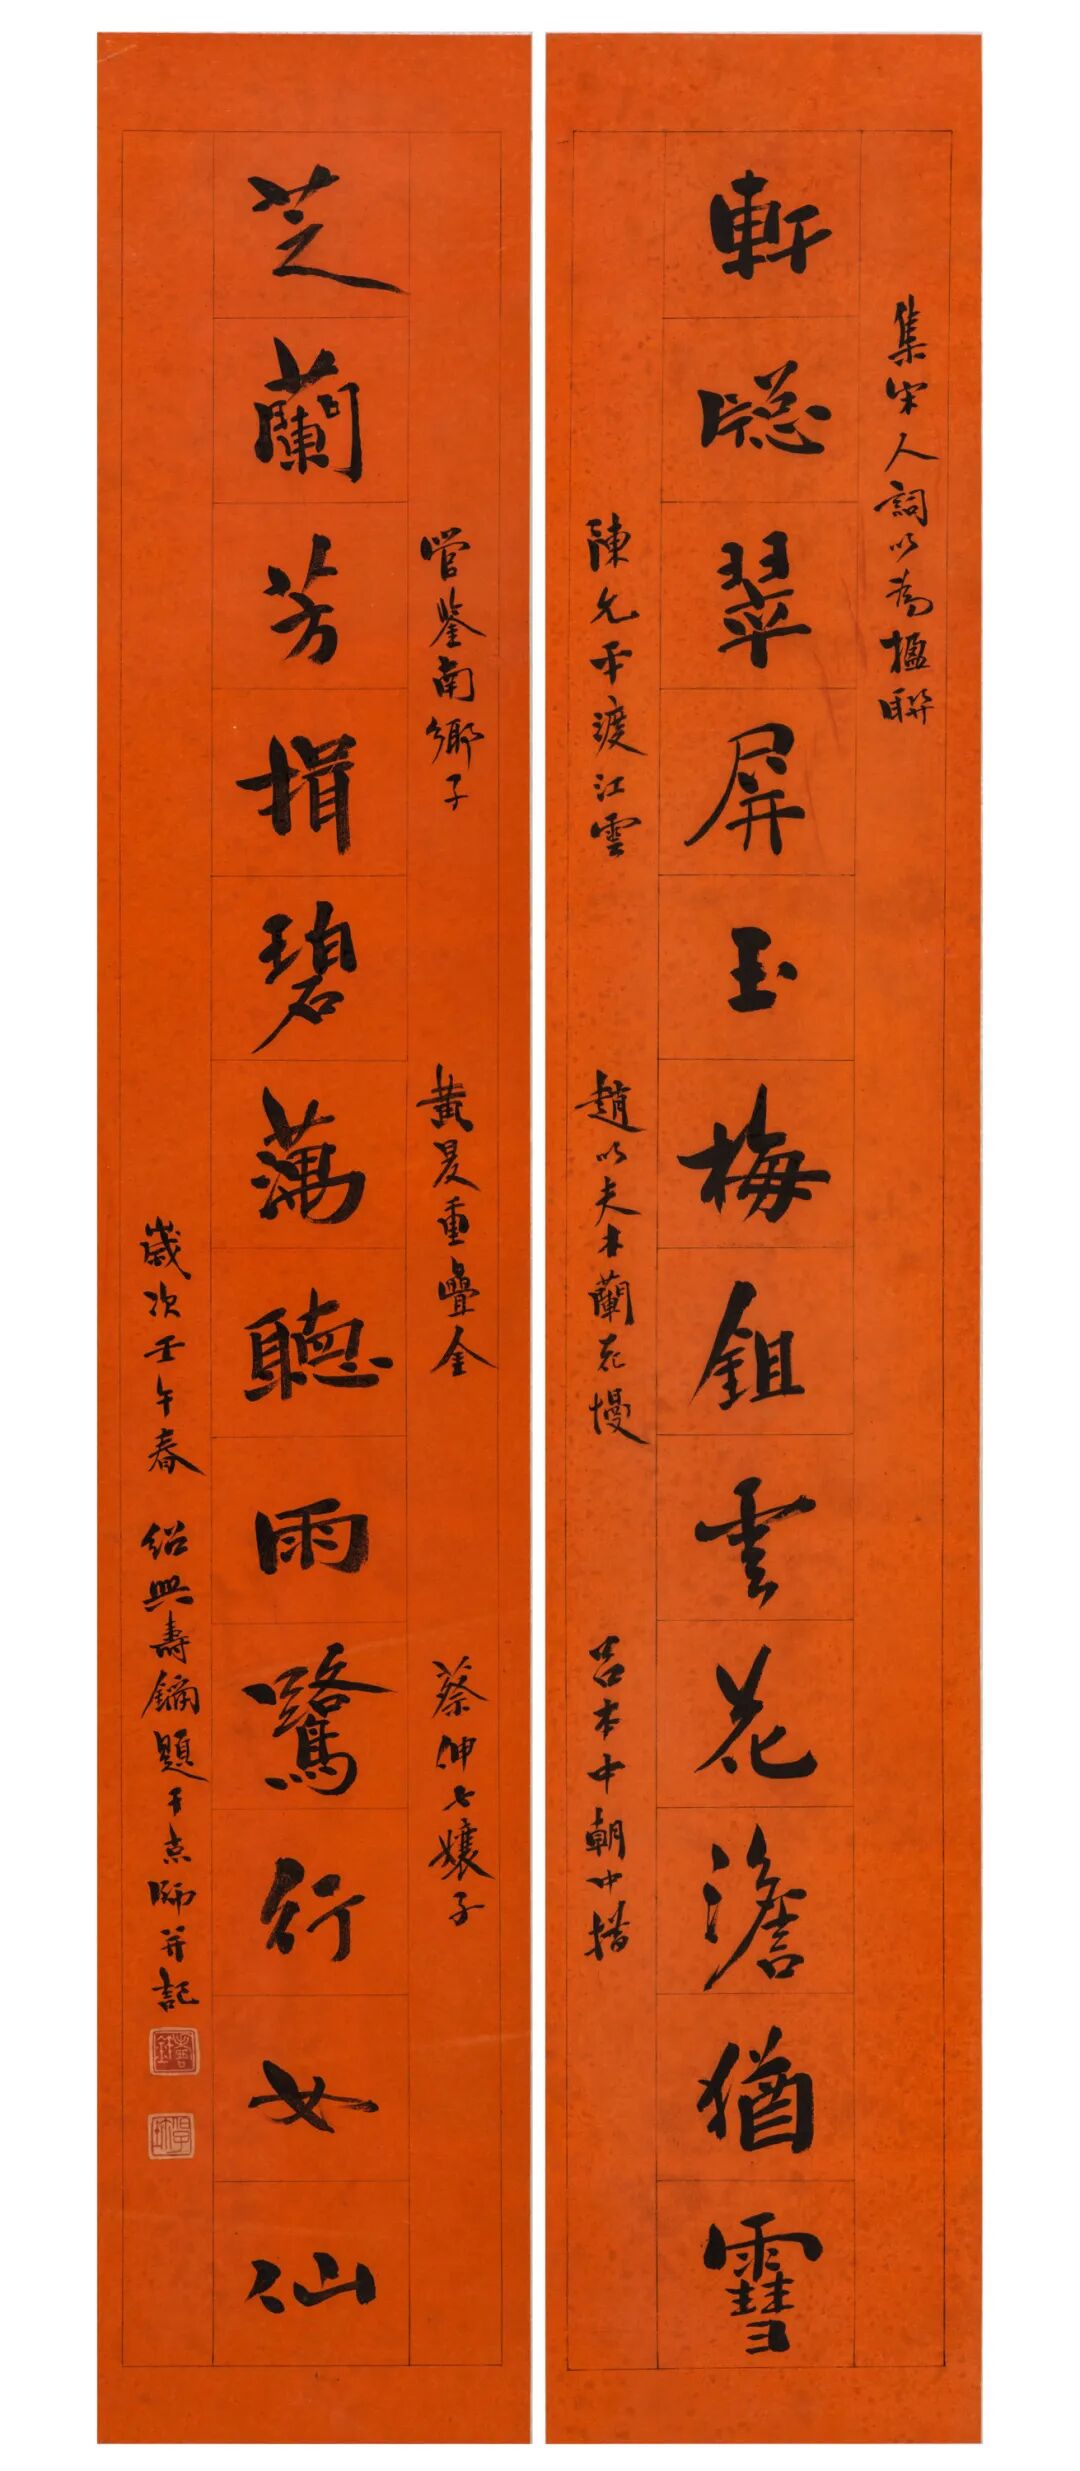 集宋人詞以為楹聯
軒牕翠屏玉梅鉏雲花澹猶䨮
陳允平渡江雲
趙以夫木蘭花慢
呂本中朝中措
管鑒南鄉子
黃昃重疊金
蔡伸七孃子
芝蘭芳揖碧藕聽雨鷺行女仙
歲次壬午春 紹興壽鏞題于京師并記